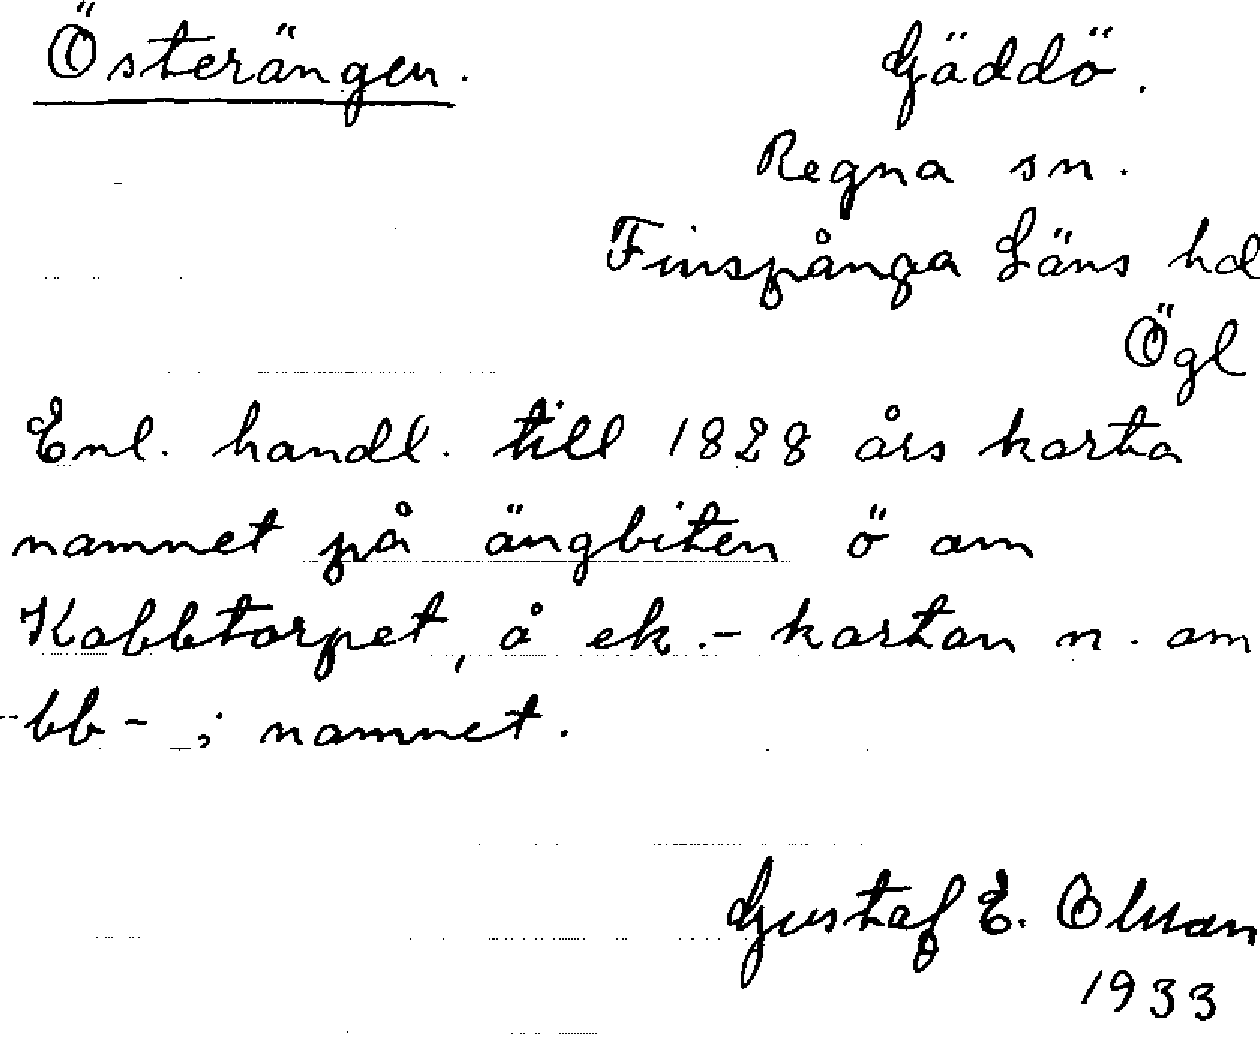 Österängen. Gäddö.
Regna sn.
Finspånga Läns hd
Ögl
Enl. handl. till 1828 års karta
namnet på ängbiten ö om
Kabbtorpet, å ek.-kartan n. om
bb- i namnet.
Gustaf E. Olsson
1933